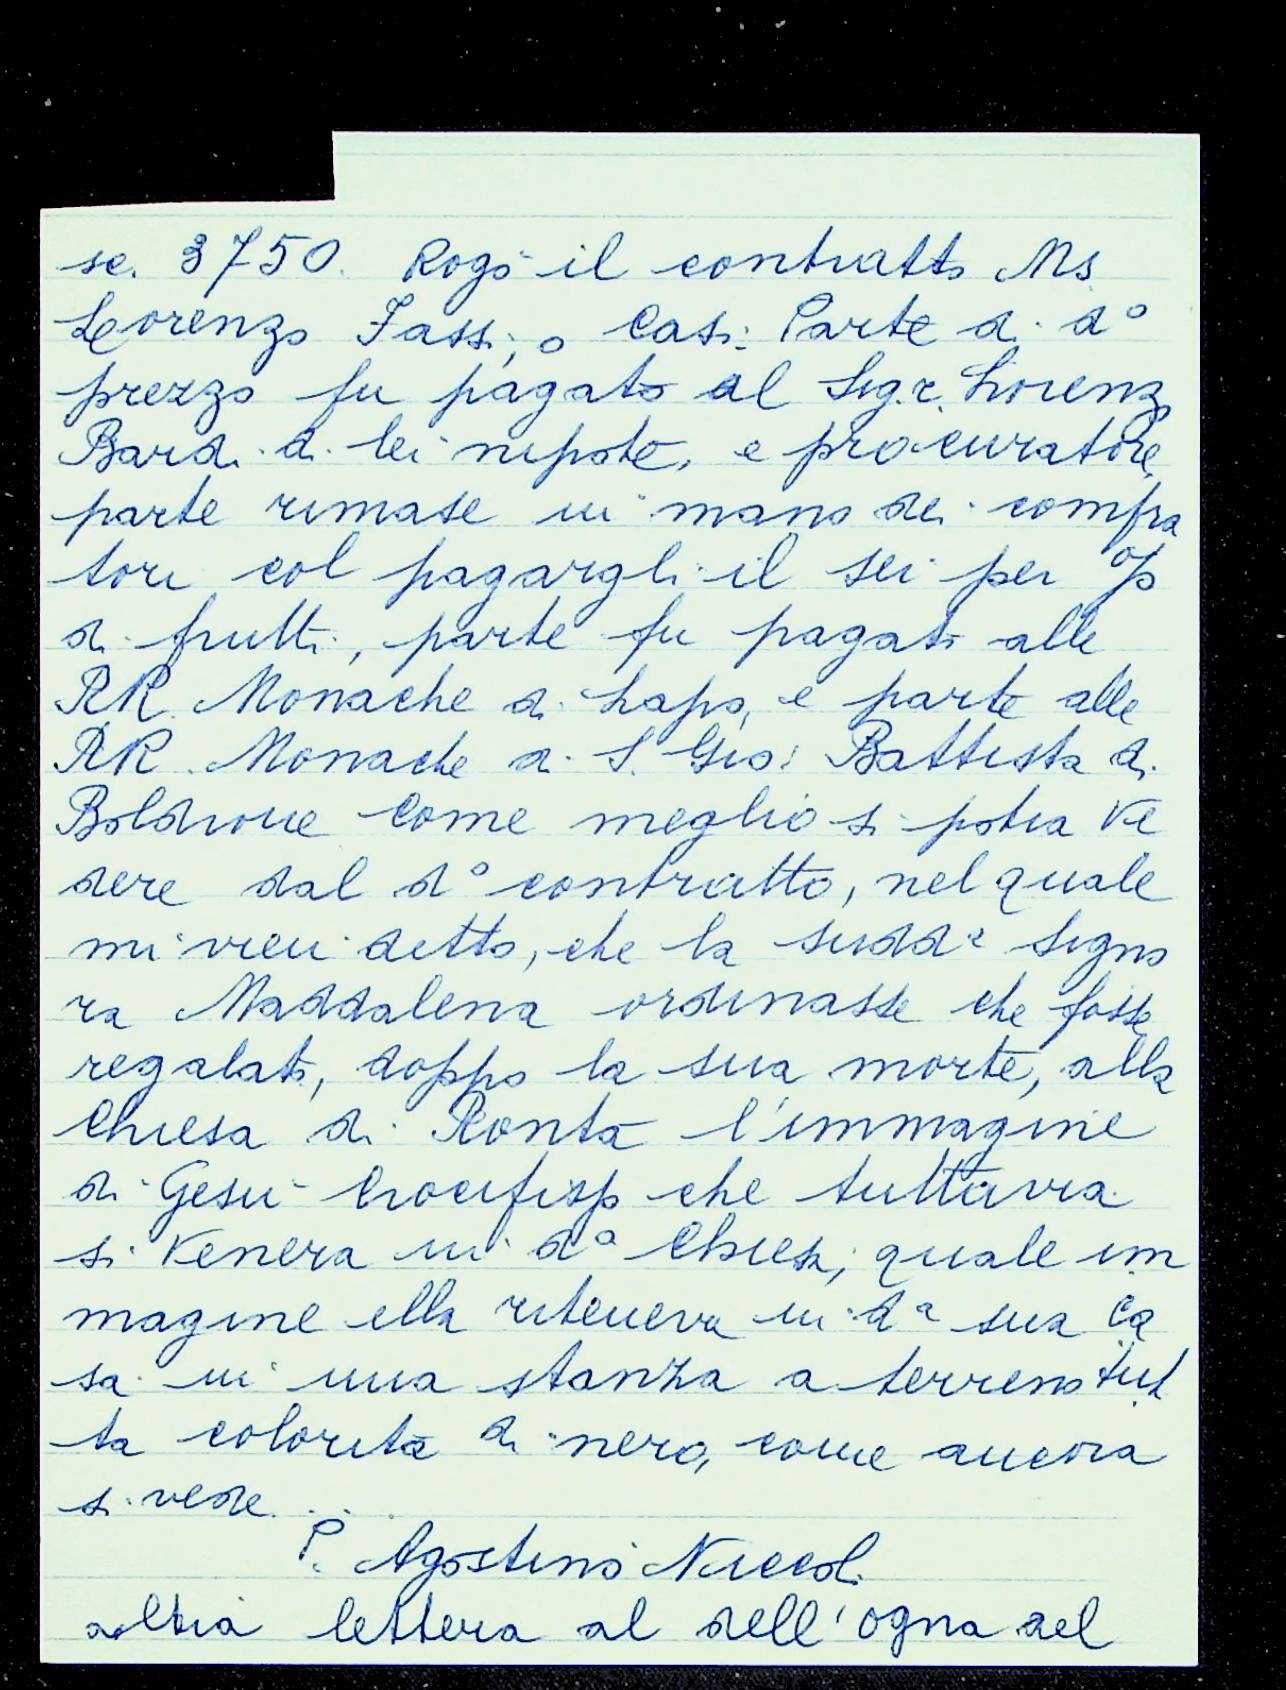 sc. 3750. Rogò il contratto Ms
Lorenzo Fassi, o Casi. Parte di d°
prezzo fu pagato al Sig.r. Lorenzo
Bardi di lei nipote, e procuratore,
parte rimase in mano dei compra
tori col pagargli il sei per %
di frutti, parte fu pagato alle
RR. Monache di Lapo, e parte alle
RR. Monache di S. Gio: Battista di
Boldrone come meglio si potrà ve
dere dal d° contratto, nel quale
mi vien detto, che la sudd.a Signo
ra Maddalena ordinasse che fosse
regalato, doppo la sua morte, alla
Chiesa di Ronta l'immagine
di Gesù Crocifisso che tuttavia
si venera in d.a Chiesa, quale im
magine ella riteneva in d.a sua Ca
sa in una stanza a terreno tut
ta colorita di nero, come ancora
si vede...
P. Agostino Niccoli
altra lettera al dell'Ogna del